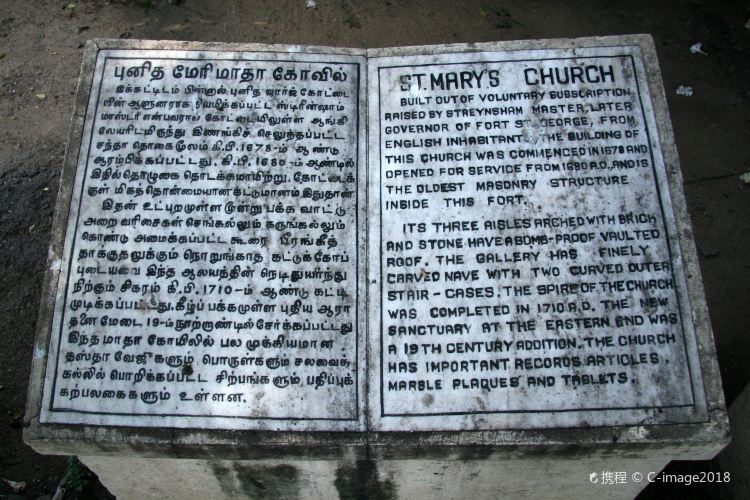 புனித மேரிமாதா கோவில்
இக்கட்டிடம் பின்னால் புனித ஜார்ஜ் கோட்டை
யின் ஆளுனராக நியமிக்கப்பட்ட ஸ்டிரீன்ஷாம்
மாஸ்டர் என்பவரால் கோட்டையிலுள்ள ஆங்கி
லேயரிடமிருந்து இணங்கிச் செலுத்தப்பட்ட
சந்தா தொகை மூலம் கி.பி.1678-ம் ஆண்டு
ஆரம்பிக்கப்பட்டது. கி.பி. 1680-ம் ஆண்டில்
இதில் தொழுகை தொடக்கமாயிற்று. கோட்டைக்
குள் மிகத்தொன்மையான கட்டுமானம் இதுதான்
இதன் உட்புறமுள்ள மூன்று பக்க வாட்டு
அறை வரிசைகள் செங்கல்லும், கருங்கல்லும்
கொண்டு அமைக்கப்பட்ட கூரை பீரங்கித்
தாக்குதலுக்கும் நொறுங்காத கட்டுக்கோப்
புடையவை இந்த ஆலயத்தின் நெடிதுயர்ந்து
நிற்கும் சிகரம் கி.பி. 1710-ம் ஆண்டு கட்டி
முடிக்கப்பட்டது. கீழ்ப் பக்கமுள்ள புதிய ஆரா
தனை மேடை, 19-ம் நூற்றாண்டில் சேர்க்கப்பட்டது
இந்த மாதா கோயிலில் பல முக்கியமான
தஸ்தா வேஜுகளும் பொருள்களும் சலவைக்
கல்லில் பொறிக்கப்பட்ட சிற்பங்களும், பதிப்புக்
கற்பலகைகளும் உள்ளன.
ST. MARY'S CHURCH
BUILT OUT OF VOLUNTARY SUBSCRIPTION
RAISED BY STREYNSHAM MASTER, LATER
GOVERNOR OF FORT ST. GEORGE, FROM
ENGLISH INHABITANTS, THE BUILDING OF
THIS CHURCH WAS COMMENCED IN 1678 AND
OPENED FOR SERVICE FROM 1680 A.D., AND IS
THE OLDEST MASONRY STRUCTURE
INSIDE THIS FORT.
ITS THREE AISLES ARCHED WITH BRICK
AND STONE HAVE A BOMB-PROOF VAULTED
ROOF. THE GALLERY HAS FINELY
CARVED NAVE WITH TWO CURVED OUTER
STAIR-CASES. THE SPIRE OF THE CHURCH
WAS COMPLETED IN 1710 A.D. THE NEW
SANCTUARY AT THE EASTERN END WAS
A 19TH CENTURY ADDITION. THE CHURCH
HAS IMPORTANT RECORDS ARTICLES,
MARBLE PLAQUES AND TABLETS.
携程 © C-image2018